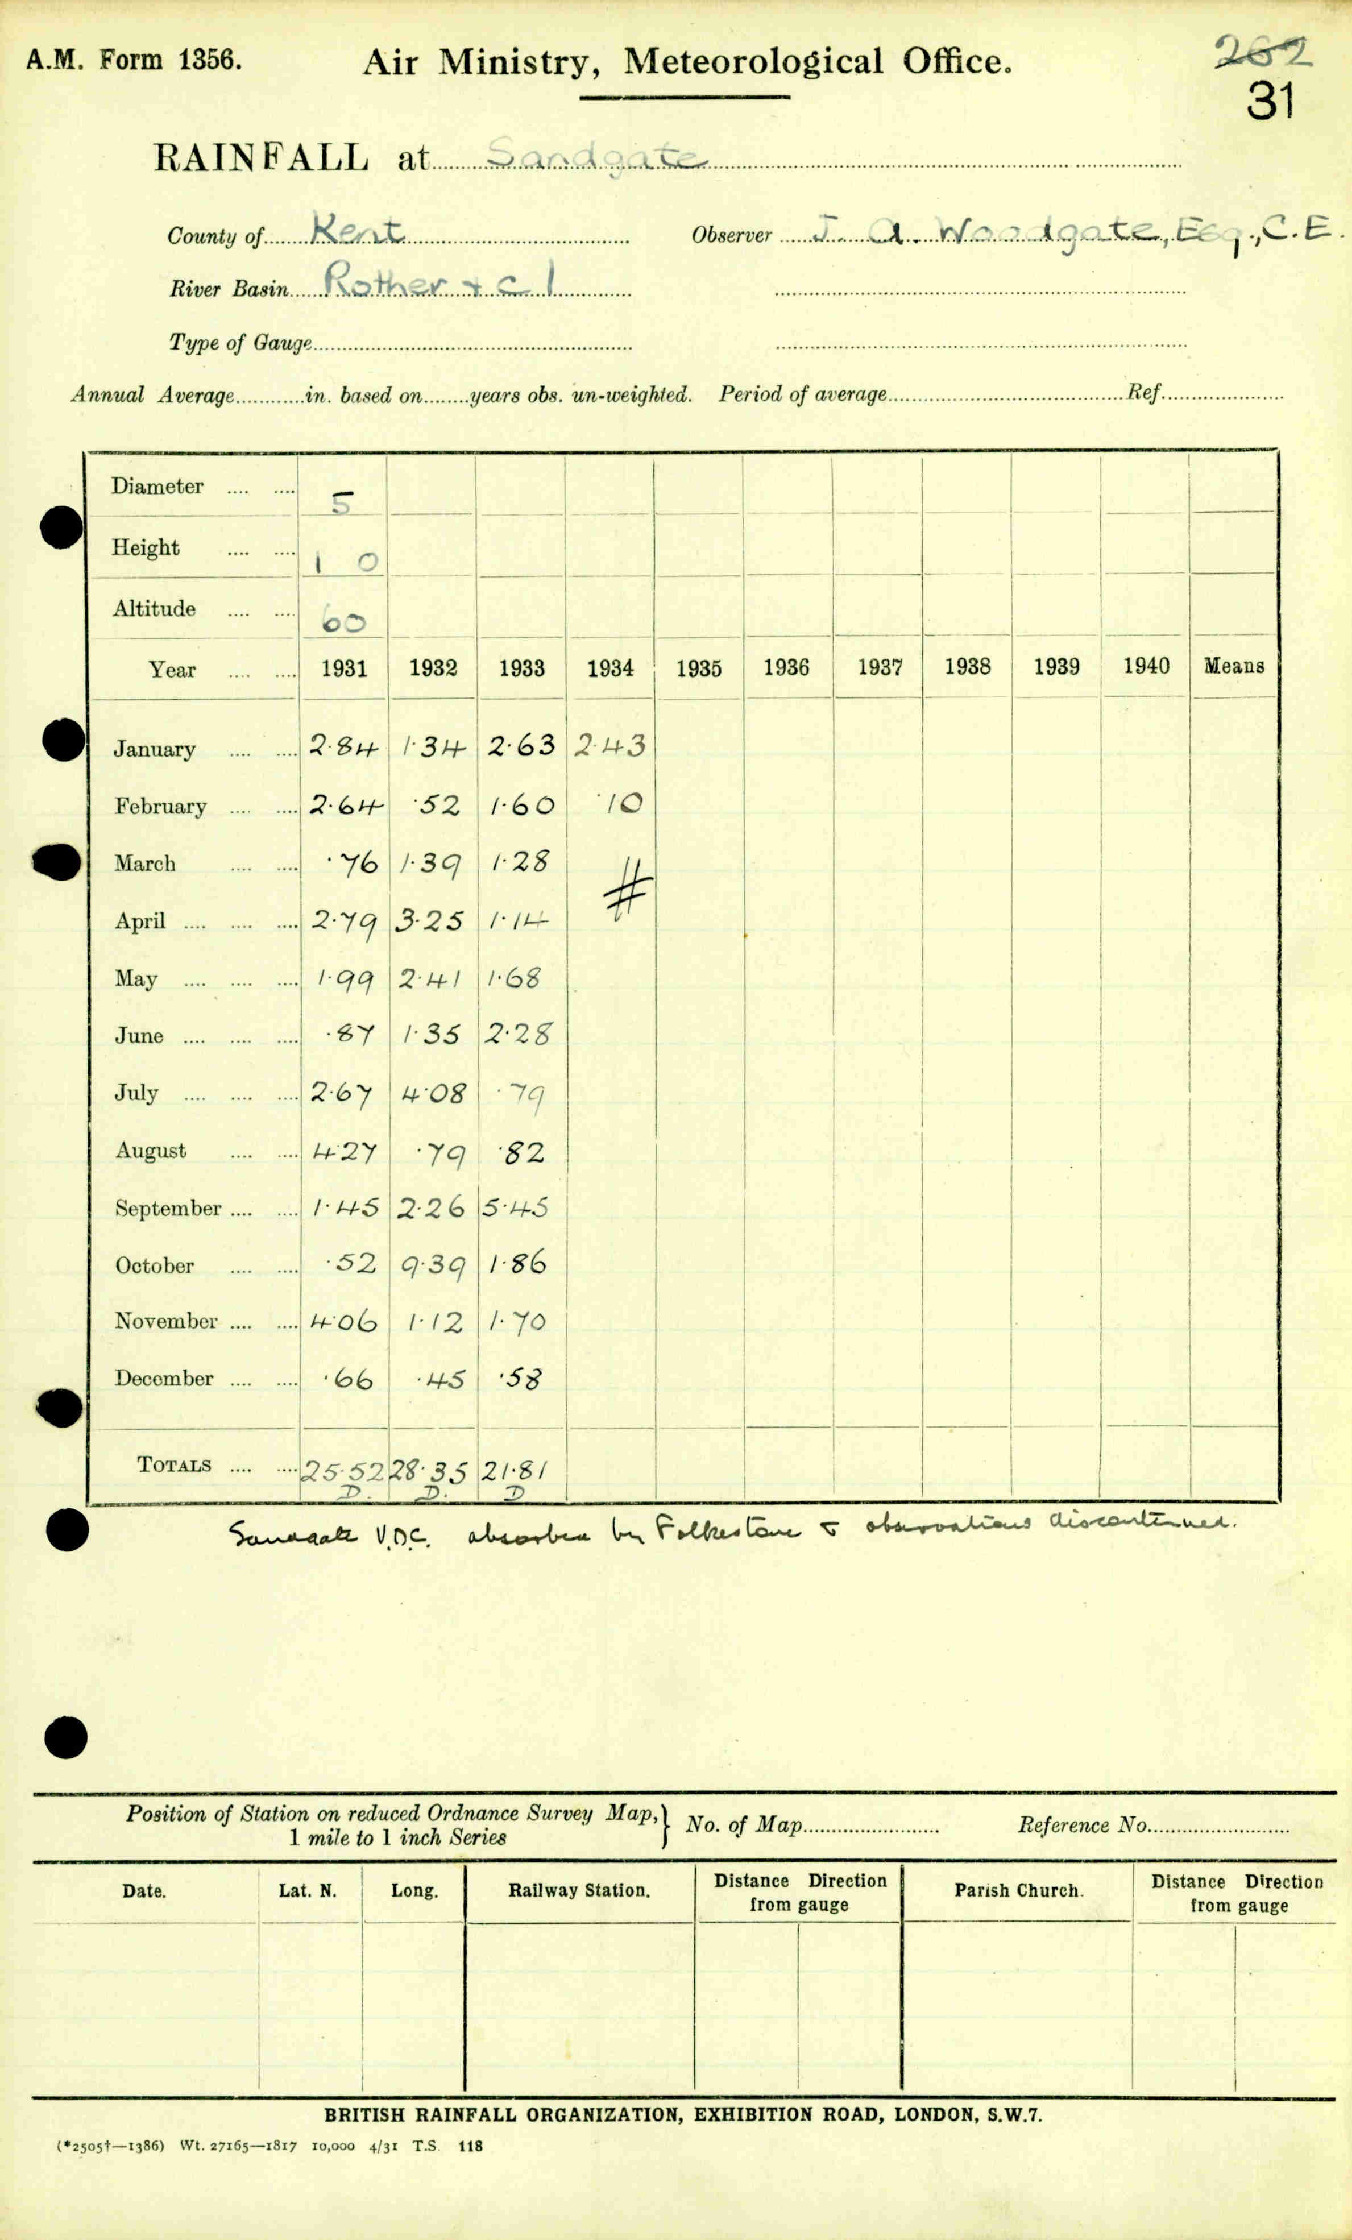 A.M. Form 1356. Air Ministry, Meteorological Office. 262
31
RAINFALL at Sandgate
County of Kent Observer J. A. Woodgate, Esq., C.E.
River Basin Rother & C 1
Type of Gauge
Annual Average in. based on years obs. un-weighted. Period of average Ref.
Diameter 5
Height 1 0
Altitude 60
Year 1931 1932 1933 1934 1935 1936 1937 1938 1939 1940 Means
January 2.84 1.34 2.63 2.43
February 2.64 .52 1.60 .10
March .76 1.39 1.28 #
April 2.79 3.25 1.14
May 1.99 2.41 1.68
June .87 1.35 2.28
July 2.67 4.08 .79
August 4.27 .79 .82
September 1.45 2.26 5.45
October .52 9.39 1.86
November 4.06 1.12 1.70
December .66 .45 .58
TOTALS 25.52 28.35 21.81
D. D. D
Sandgate U.D.C. absorbed by Folkestone & observations discontinued.
Position of Station on reduced Ordnance Survey Map, } No. of Map Reference No.
1 mile to 1 inch Series
Date. Lat. N. Long. Railway Station. Distance Direction from gauge Parish Church. Distance Direction from gauge
BRITISH RAINFALL ORGANIZATION, EXHIBITION ROAD, LONDON, S.W.7.
(*2505†—1386) Wt. 27165—1817 10,000 4/31 T.S. 118